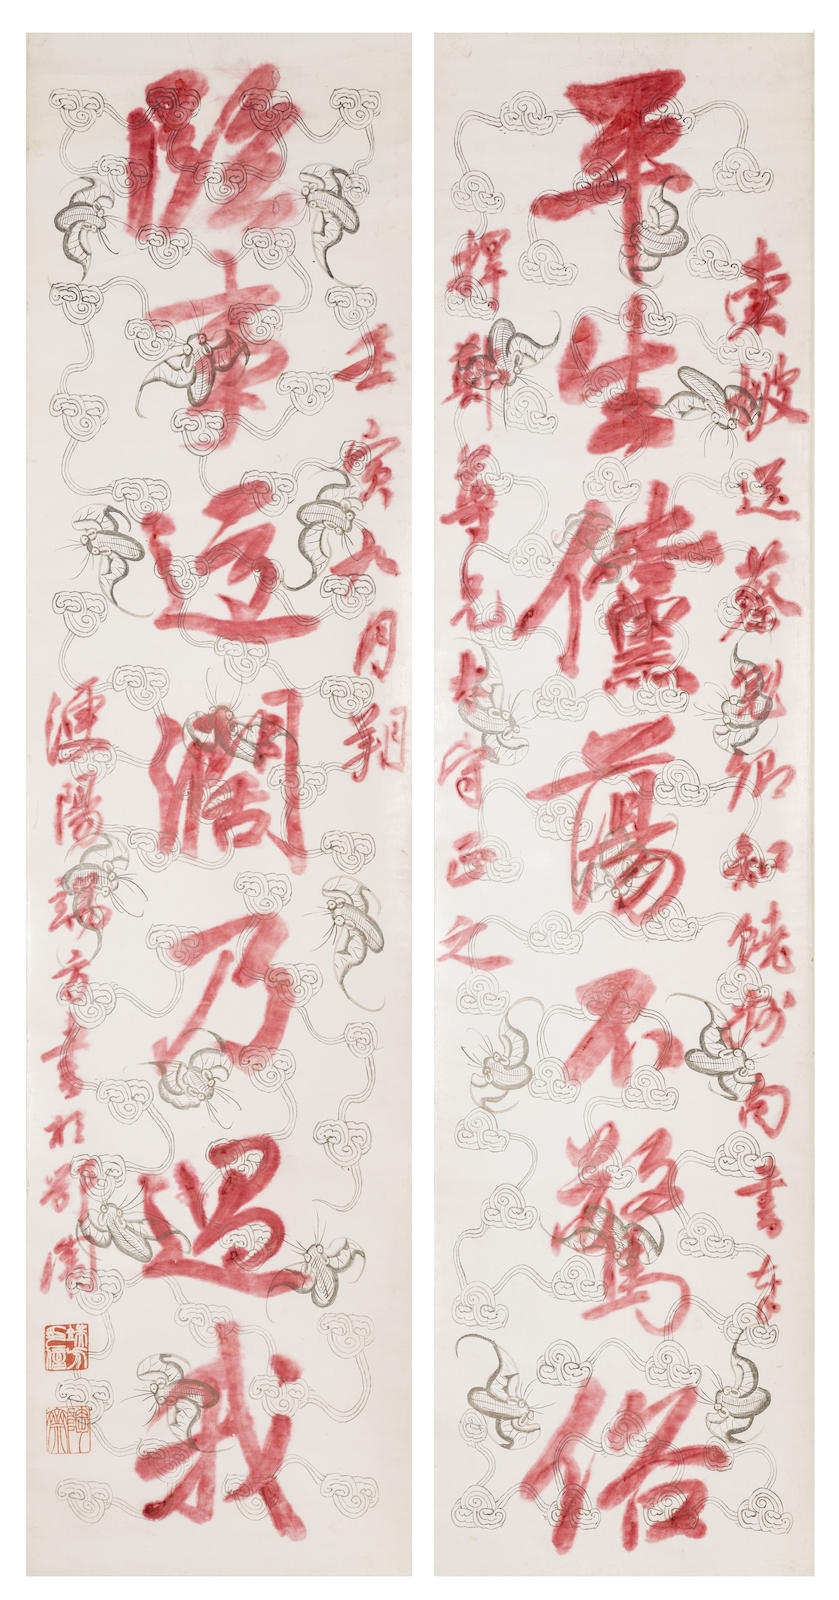 東坡送蔡冠卿知饒州句書奉
平生儻蕩不驚俗
輝尊兄大守正之
壬寅六月朔
臨事迂闊乃過我
浭陽端方書於鄂
陶齋